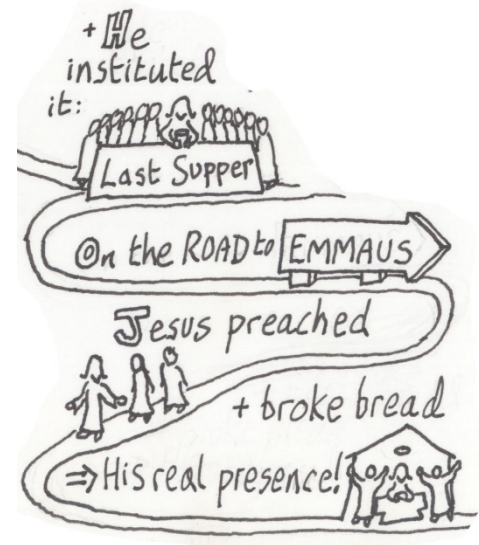 + He
instituted
it:
Last Supper
On the ROAD to EMMAUS
Jesus preached
+ broke bread
⇒ His real presence!